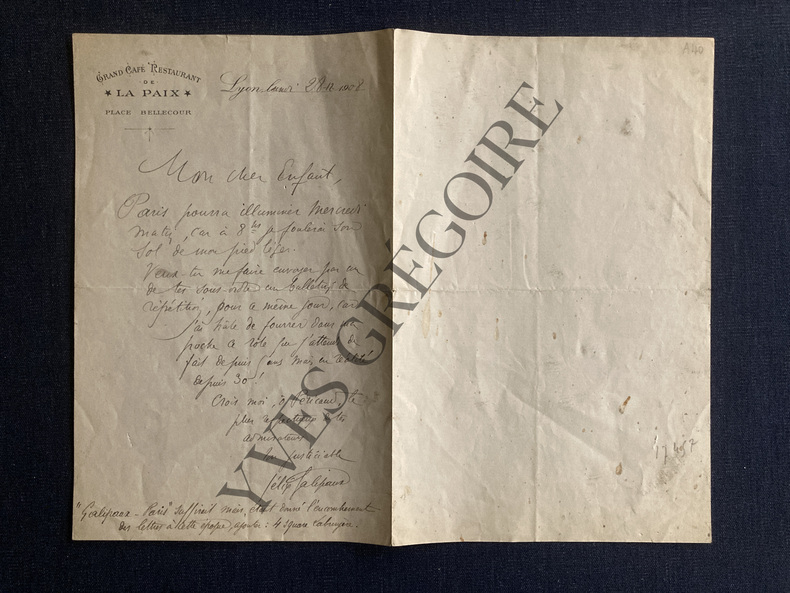 GRAND CAFÉ RESTAURANT
DE
LA PAIX
PLACE BELLECOUR
Lyon lundi 28
Mon cher Enfant,
Paris pourra illuminer Mercredi
matin, car à 8 hes je foulerai son
sol de mon pied léger.
Veux-tu me faire envoyer par un
de tes sous-ordre un bulletin de
répétition, pour ce même jour, car
j'ai hâte de fourrer dans ma
poche ce rôle que j'attends de
fait depuis ans mais en réalité
depuis 30!
Crois moi, le
plus de tes
admirateurs
Félix Galipaux
"Galipaux-Paris" suffirait mais, étant donné l'encombrement
des lettres à cette époque, ajouter : 4 square
A40
YVES GRÉGOIRE